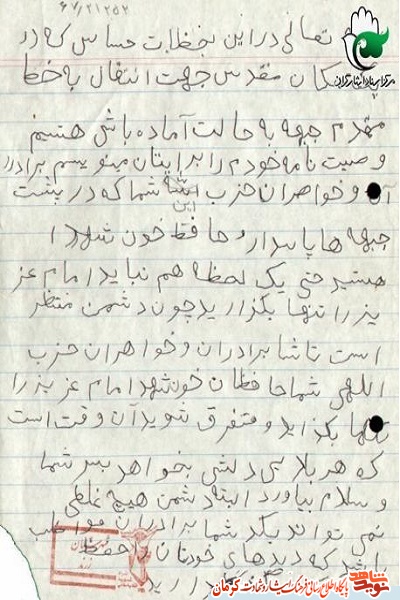 ۶۷/۲۱۲۵۲
تعالی در این لحظات حساس که در
مکان مقدس جهت انتقال به خط
مقدم جبهه به حالت آماده باش هستیم
وصیت نامه خودم را برایتان مینویسم برادر
و خواهران حزب الله این شما که در پشت
جبهه ها پاسدار و حافظ خون شهدا
هستید حتی یک لحظه هم نباید امام عز
یز را تنها بگزارید چون دشمن منتظر
است تا شما برادران و خواهران حزب
اللهی شما حافظان خون شهدا امام عزیز را
تنها بگذارید و متفرق شوید آن وقت است
که هر بلایی دلش بخواهد بسر شما
و اسلام بیاورد البته دشمن هیچ غلطی
نمی تواند بکند شما برادران مواظب
باشید که دیدهای خودتان را حفظ
مرکز اسناد ایثارگران
نوید شاهد
پایگاه اطلاع رسانی فرهنگ ایثار و شهادت کرمان